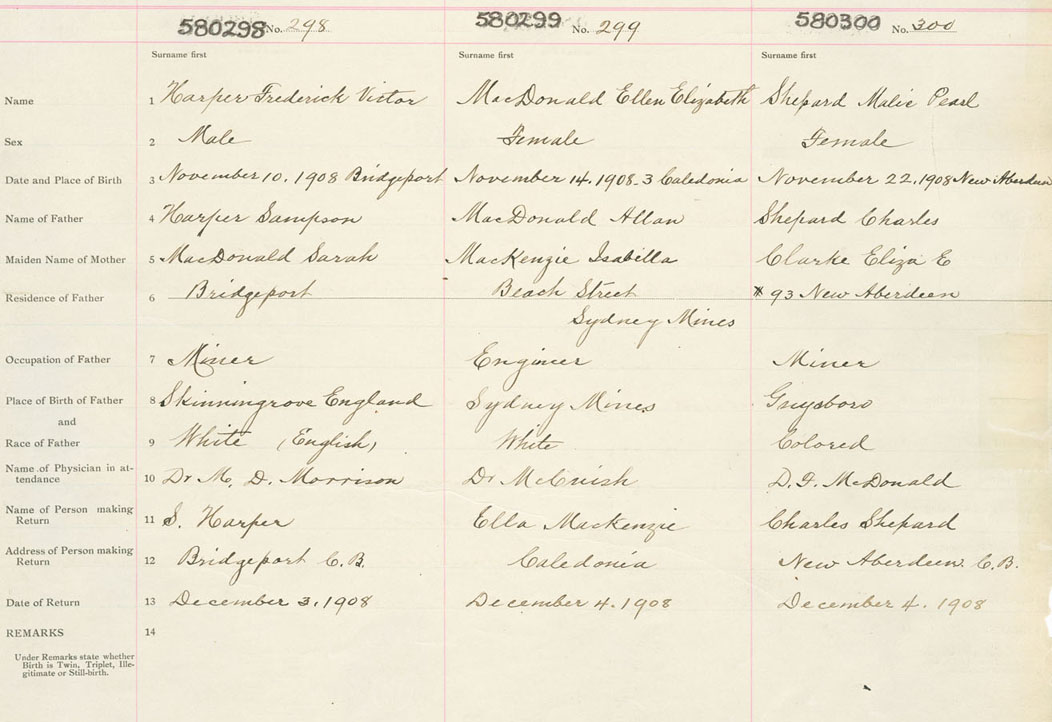 580298 No. 298 580299 No. 299 580300 No. 300
Surname first Surname first Surname first
Name 1 Harper Frederick Victor MacDonald Ellen Elizabeth Shepard Malic Pearl
Sex 2 Male Female Female
Date and Place of Birth 3 November 10. 1908 Bridgeport November 14. 1908 - 3 Caledonia November 22. 1908 New Aberdeen
Name of Father 4 Harper Sampson MacDonald Allan Shepard Charles
Maiden Name of Mother 5 MacDonald Sarah MacKenzie Isabella Clarke Eliza E
Residence of Father 6 Bridgeport Beach Street # 93 New Aberdeen
Sydney Mines
Occupation of Father 7 Miner Engineer Miner
Place of Birth of Father 8 Skinningrove England Sydney Mines Guysboro
and
Race of Father 9 White (English) White Colored
Name of Physician in at-
tendance 10 Dr M. D. Morrison Dr McCuish D. F. McDonald
Name of Person making
Return 11 S. Harper Ella Mackenzie Charles Shepard
Address of Person making
Return 12 Bridgeport C.B. Caledonia New Aberdeen C.B.
Date of Return 13 December 3. 1908 December 4. 1908 December 4. 1908
REMARKS 14
Under Remarks state whether
Birth is Twin, Triplet, Ille-
gitimate or Still-birth.